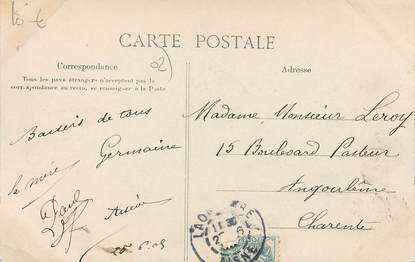 10 €
CARTE POSTALE
Correspondance
02
Adresse
Tous les pays étrangers n'acceptent pas la
correspondance au recto, se renseigner à la Poste
Baisers de tous
Germaine
la mère
Paul
Madame Monsieur Leroy
15 Boulevard Pasteur
Angoulême
Charente